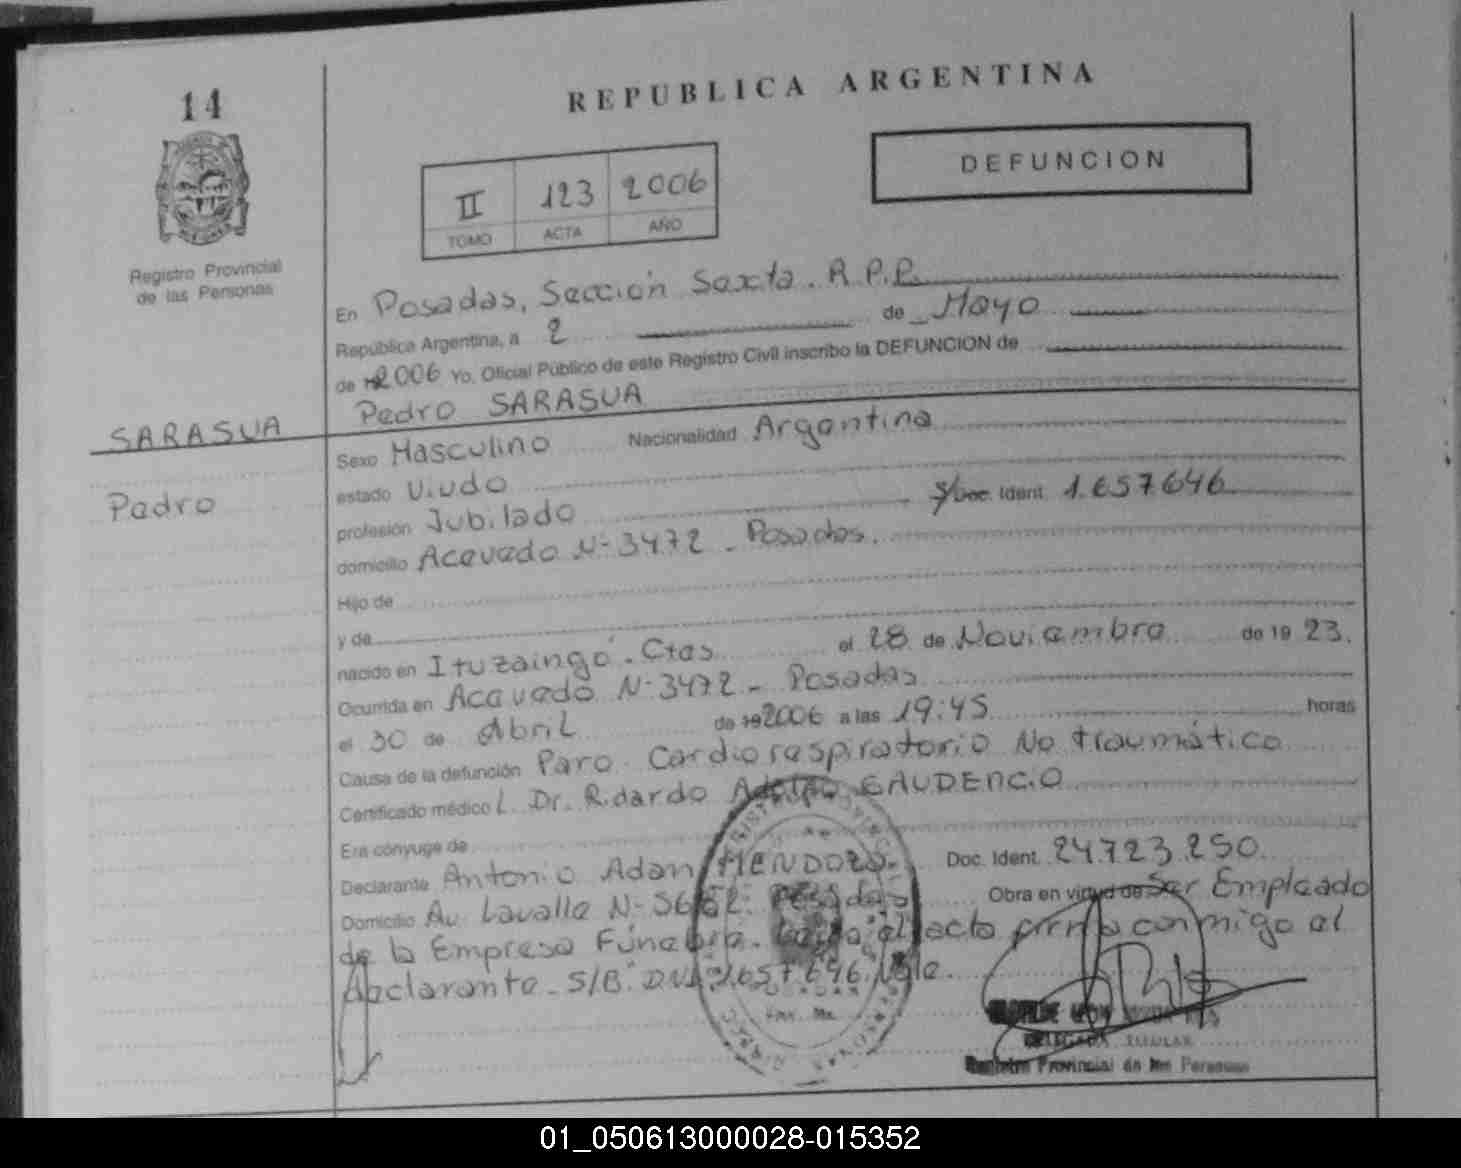 14
REPUBLICA ARGENTINA
DEFUNCION
II 123 2006
TOMO ACTA AÑO
Registro Provincial
de las Personas
En Posadas, Sección Sexta. R.P.P.
República Argentina, a 2 de Mayo
de 2006 Yo. Oficial Público de este Registro Civil inscribo la DEFUNCION de
Pedro SARASUA
SARASUA
Pedro
Sexo Masculino Nacionalidad Argentina
estado Viudo
profesión Jubilado S/Doc. Ident. 1.657.646
domicilio Acevedo Nº 3472 - Posadas.
Hijo de
y de
nacido en Ituzaingó. Ctes el 28 de Noviembre de 19 23.
Ocurrida en Acevedo Nº 3472 - Posadas
el 30 de Abril de 2006 a las 19:45 horas
Causa de la defunción Paro Cardiorespiratorio No traumático
Certificado médico L. Dr. Ricardo Adolfo GAUDENCIO
Era cónyuge de
Declarante Antonio Adan MENDOZA. Doc. Ident. 24.723.250.
Domicilio Av. Lavalle Nº 5662. Posadas Obra en virtud de Ser Empleado
de la Empresa Fúnebre. el acta firma conmigo el
declarante. S/B. DNI. 1.657.646. Vale.
TITULAR
Registro Provincial de las Personas
01_050613000028-015352